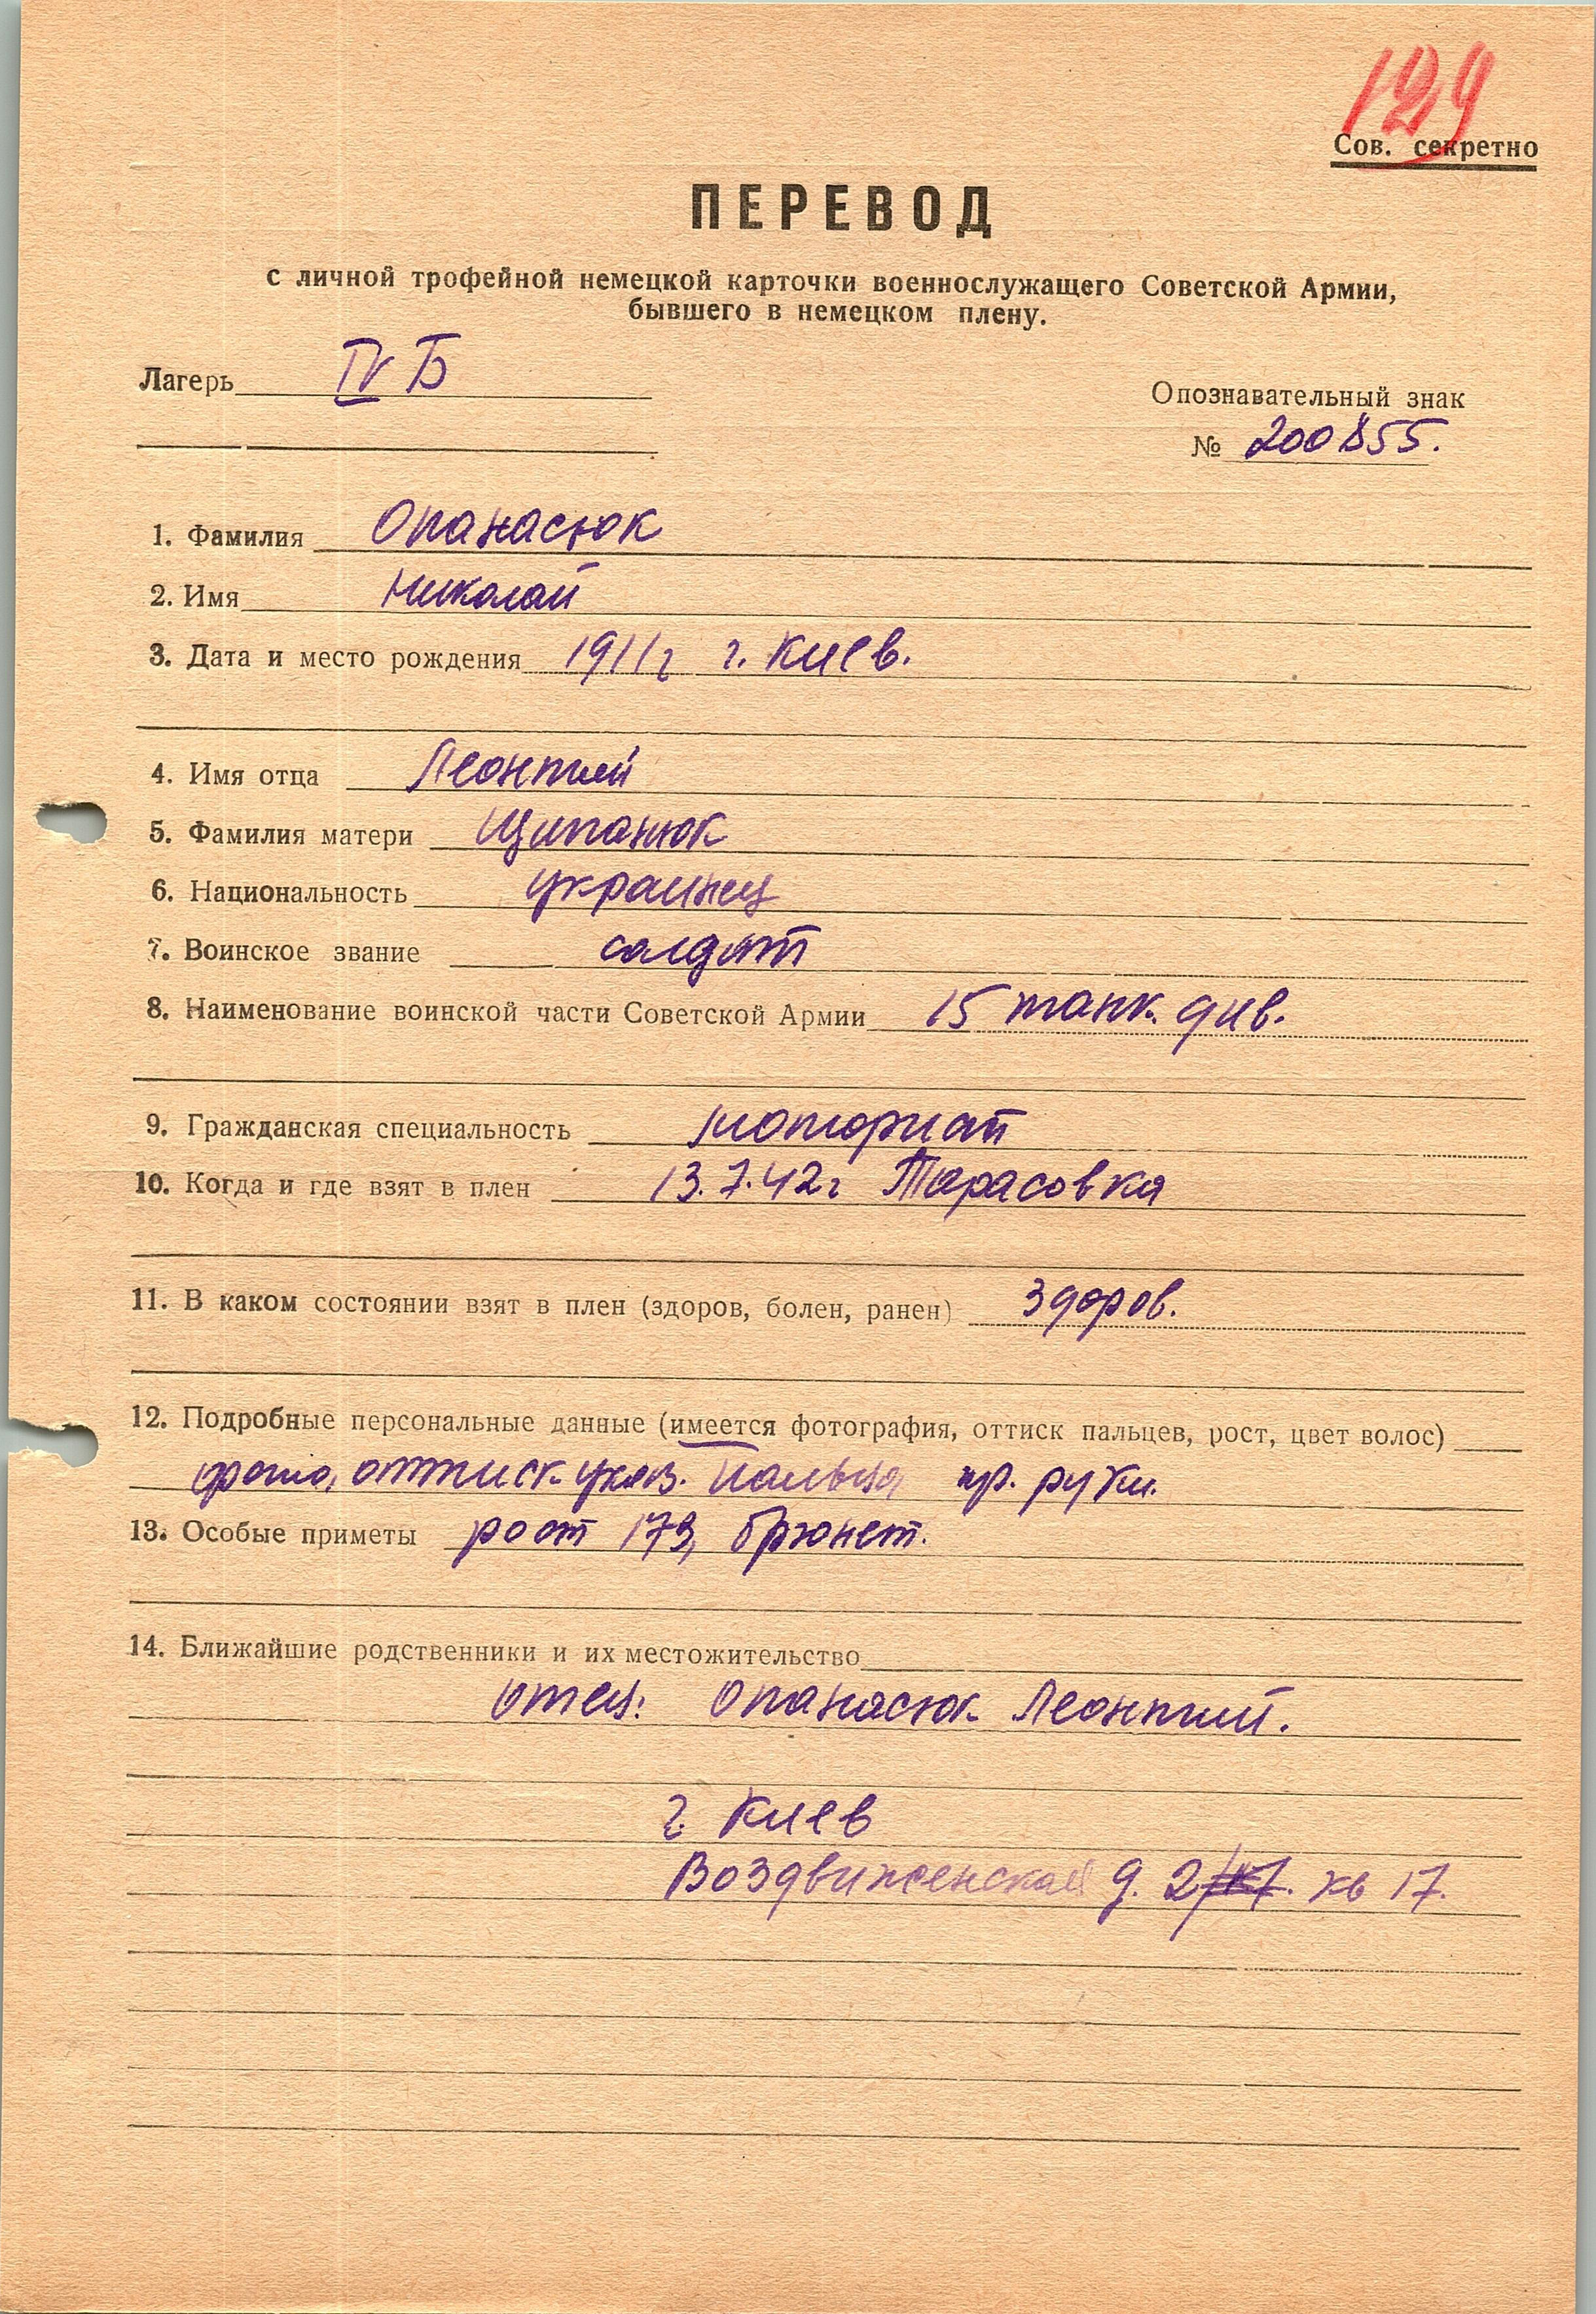 129
Сов. секретно
ПЕРЕВОД
с личной трофейной немецкой карточки военнослужащего Советской Армии,
бывшего в немецком плену.
Лагерь IV Б
Опознавательный знак
№ 200855.
1. Фамилия Опанасюк
2. Имя Николай
3. Дата и место рождения 1911г г. Киев.
4. Имя отца Леонтий
5. Фамилия матери Щипанюк
6. Национальность украинец
7. Воинское звание солдат
8. Наименование воинской части Советской Армии 15 танк. див.
9. Гражданская специальность
10. Когда и где взят в плен 13.7.42г Тарасовка
11. В каком состоянии взят в плен (здоров, болен, ранен) здоров.
12. Подробные персональные данные (имеется фотография, оттиск пальцев, рост, цвет волос)
фото, оттиск указ. пальца пр. руки.
13. Особые приметы рост 173, брюнет.
14. Ближайшие родственники и их местожительство
отец: Опанасюк Леонтий.
г. Киев
Воздвиженская д. 2 кв 17.